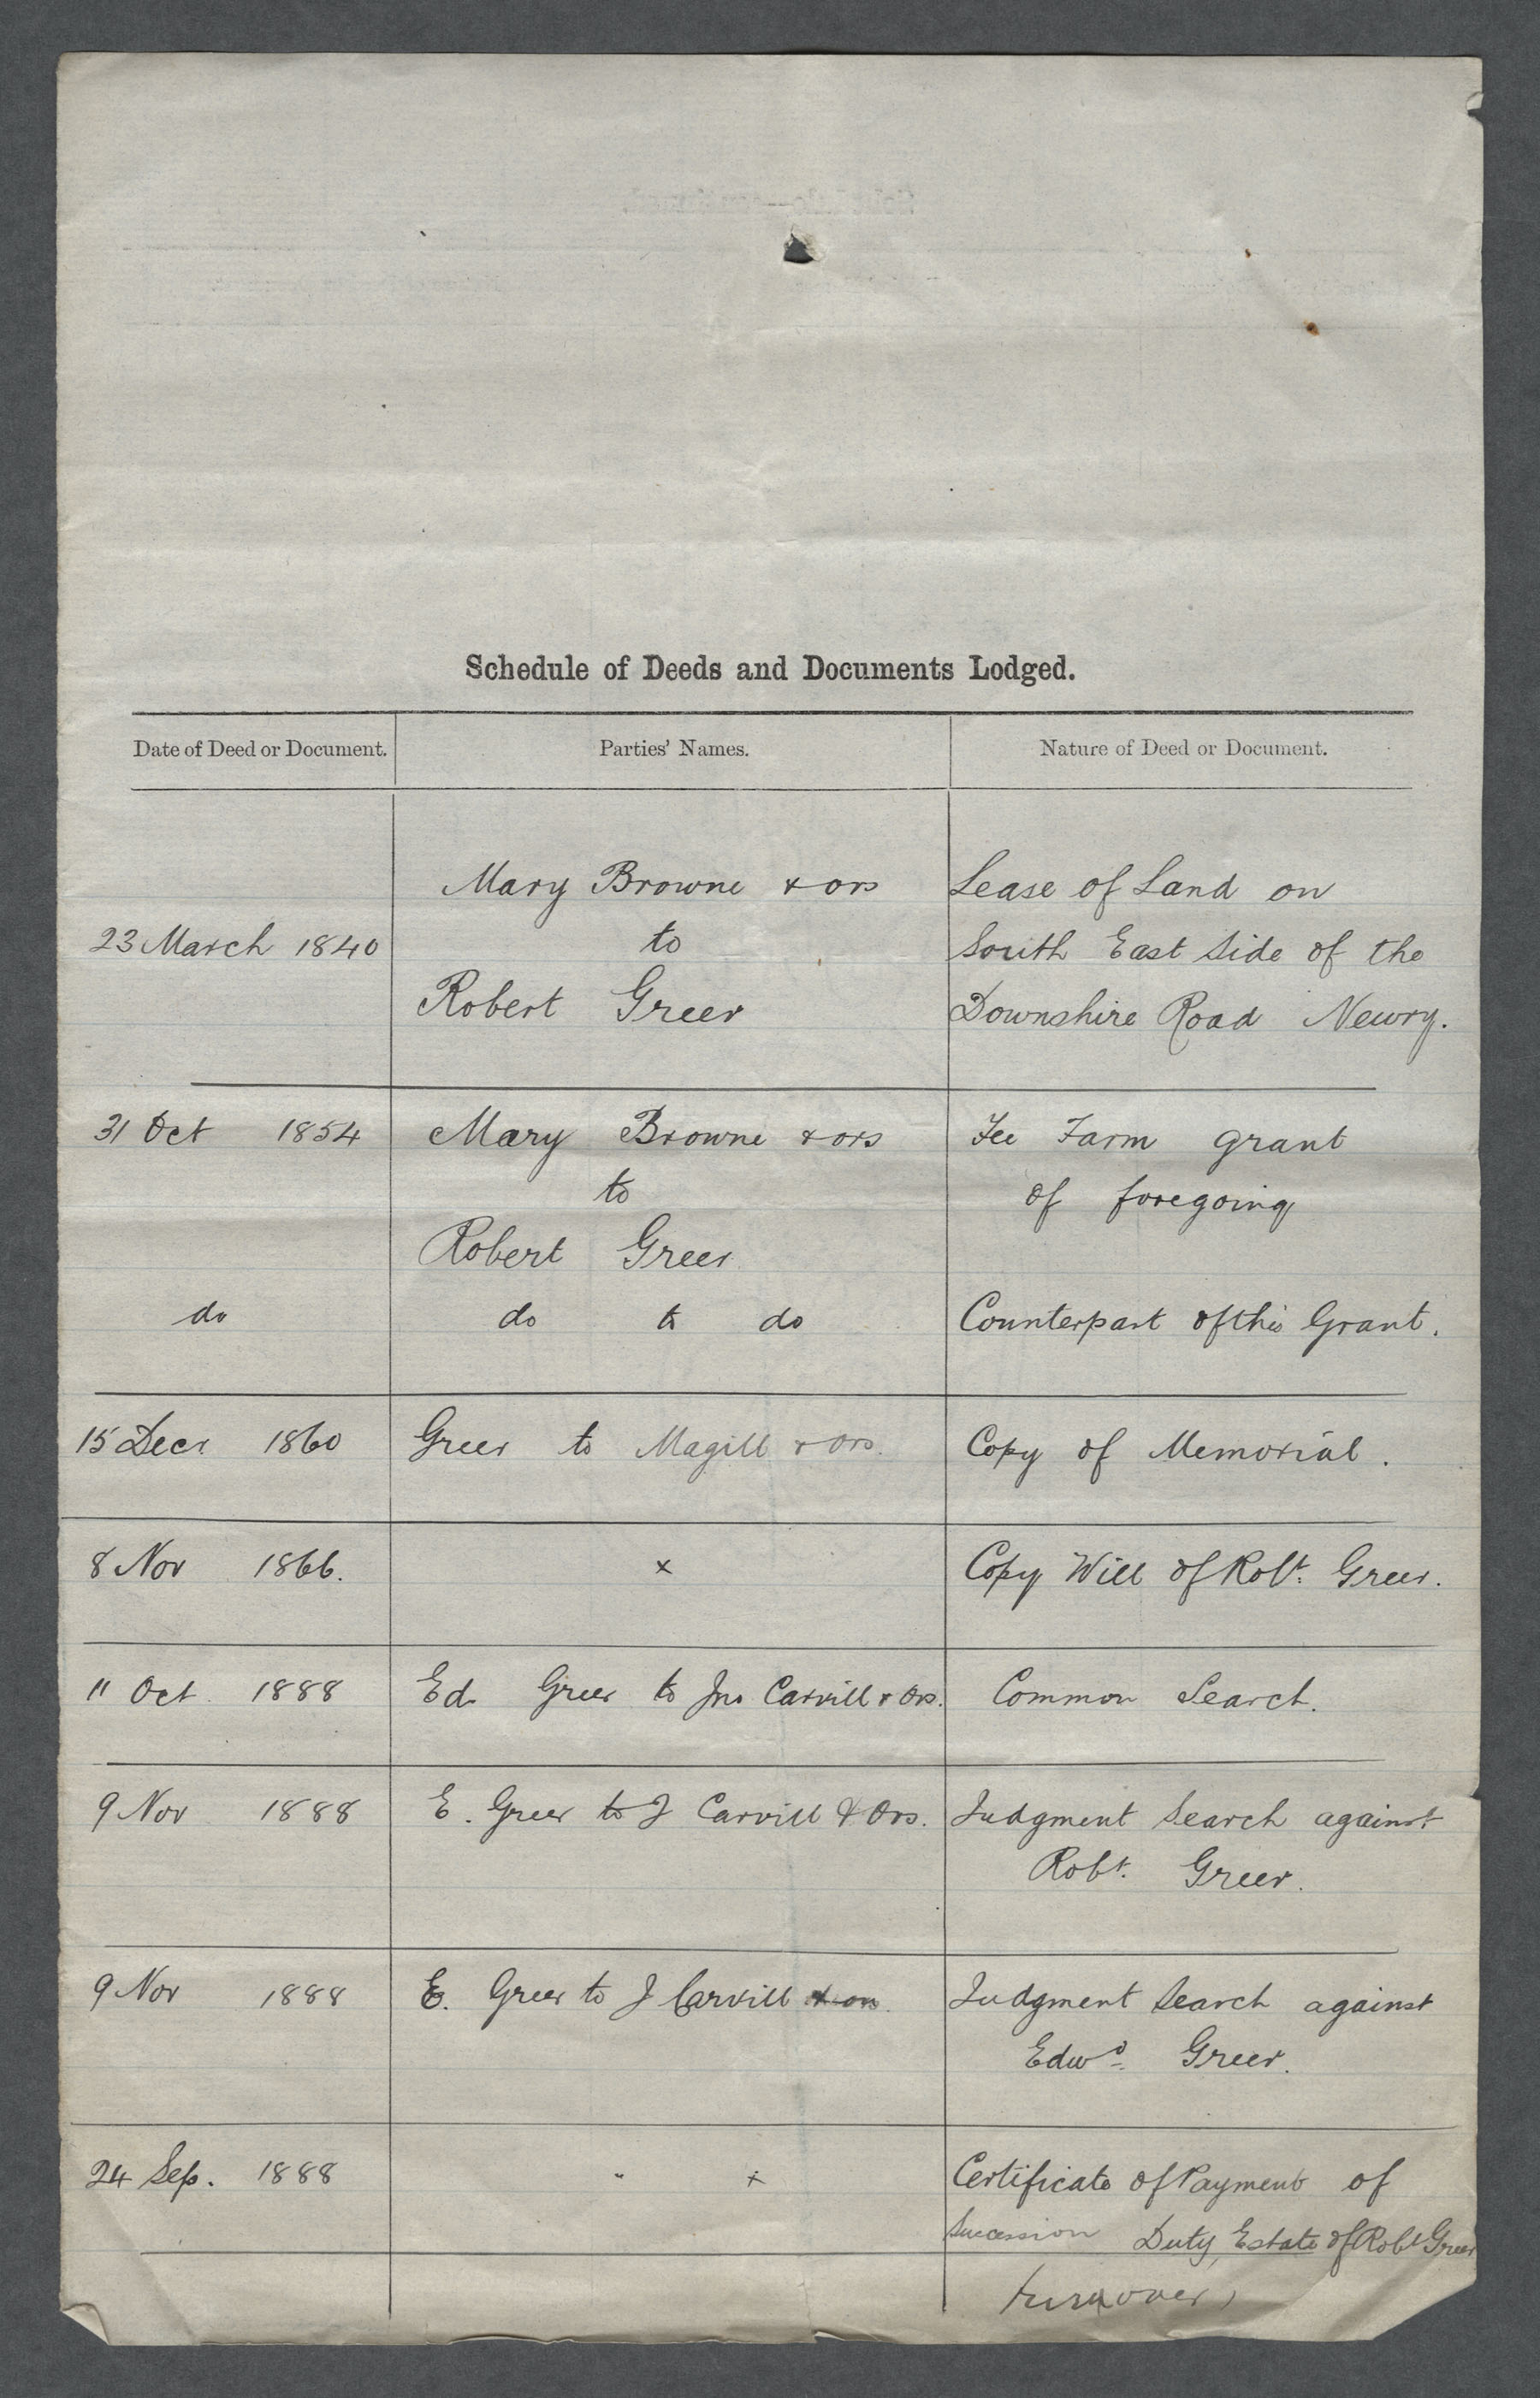 Schedule of Deeds and Documents Lodged.
Date of Deed or Document. Parties' Names. Nature of Deed or Document.
Mary Browne & ors Lease of Land on
23 March 1840 to South East Side of the
Robert Greer Downshire Road Newry.
31 Oct 1854 Mary Browne & ors Fee Farm grant
to of foregoing
Robert Greer
do do to do Counterpart of this Grant.
15 Decr 1860 Greer to Magill & ors. Copy of Memorial.
8 Nov 1866. x Copy Will of Robt. Greer.
11 Oct 1888 Ed Greer to Jno Carvill & Ors. Common Search.
9 Nov 1888 E. Greer to J Carvill & Ors. Judgment Search against
Robt. Greer.
9 Nov 1888 E. Greer to J Carvill & ors. Judgment Search against
Edwd Greer.
24 Sep. 1888 " x Certificate of Payment of
Succession Duty, Estate of Robt Greer
(turn over)